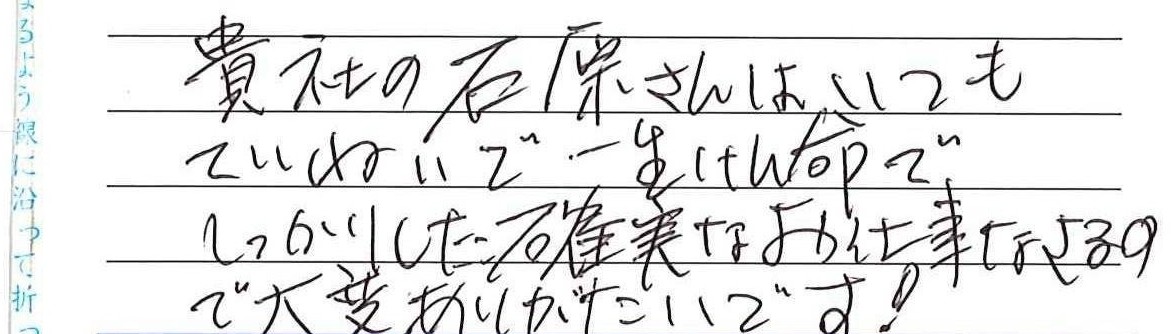 貴社の石原さんは、いつも
ていねいで一生けん命で、
しっかりした確実なお仕事なさるの
で大変ありがたいです！
るよう線に沿って折っ